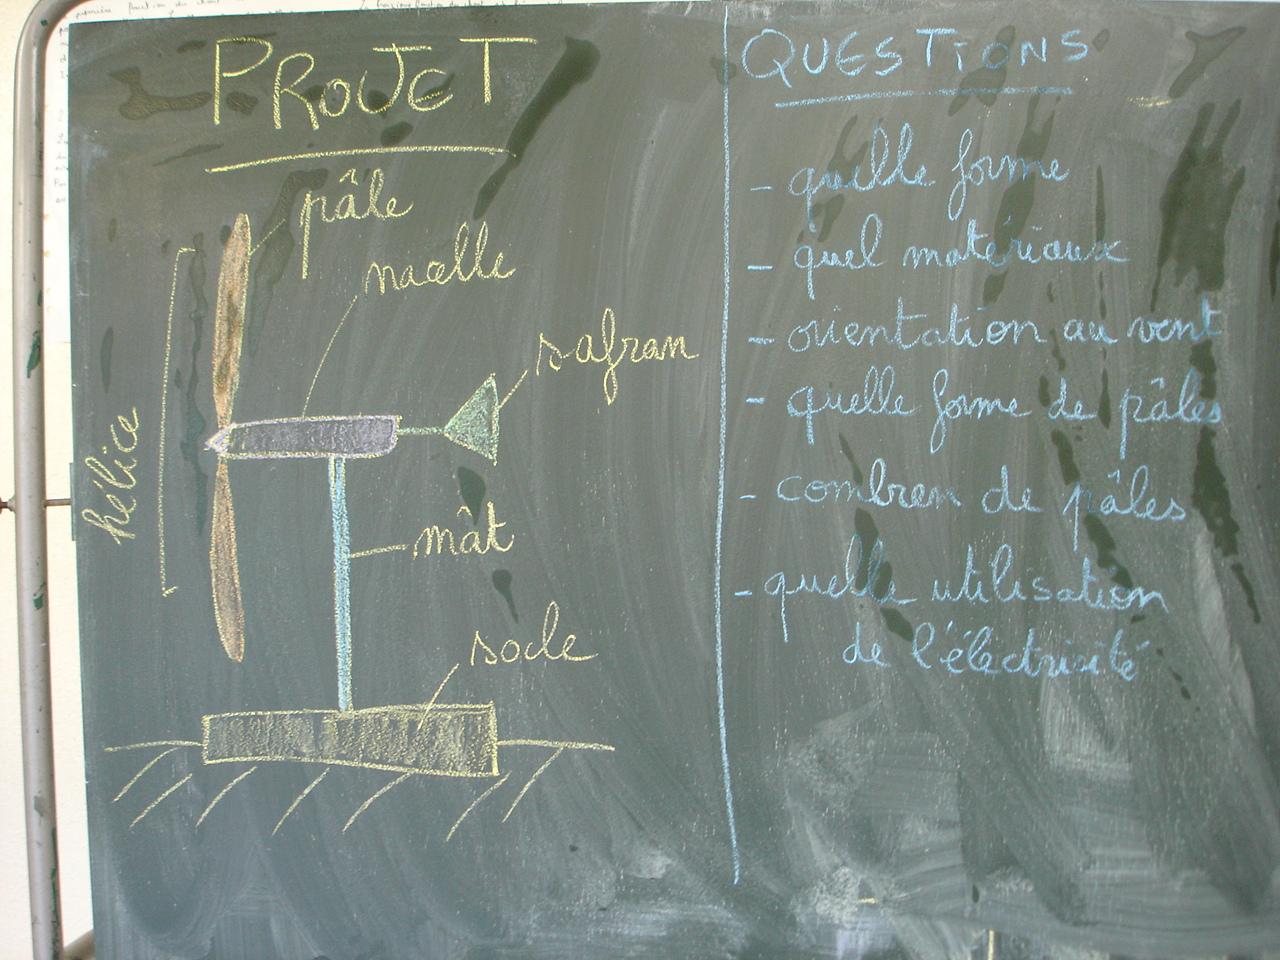 PROJET
pâle
nacelle
safran
hélice
mât
socle
QUESTIONS
- quelle forme
- quel matériaux
- orientation au vent
- quelle forme de pâles
- combien de pâles
- quelle utilisation
de l'électricité